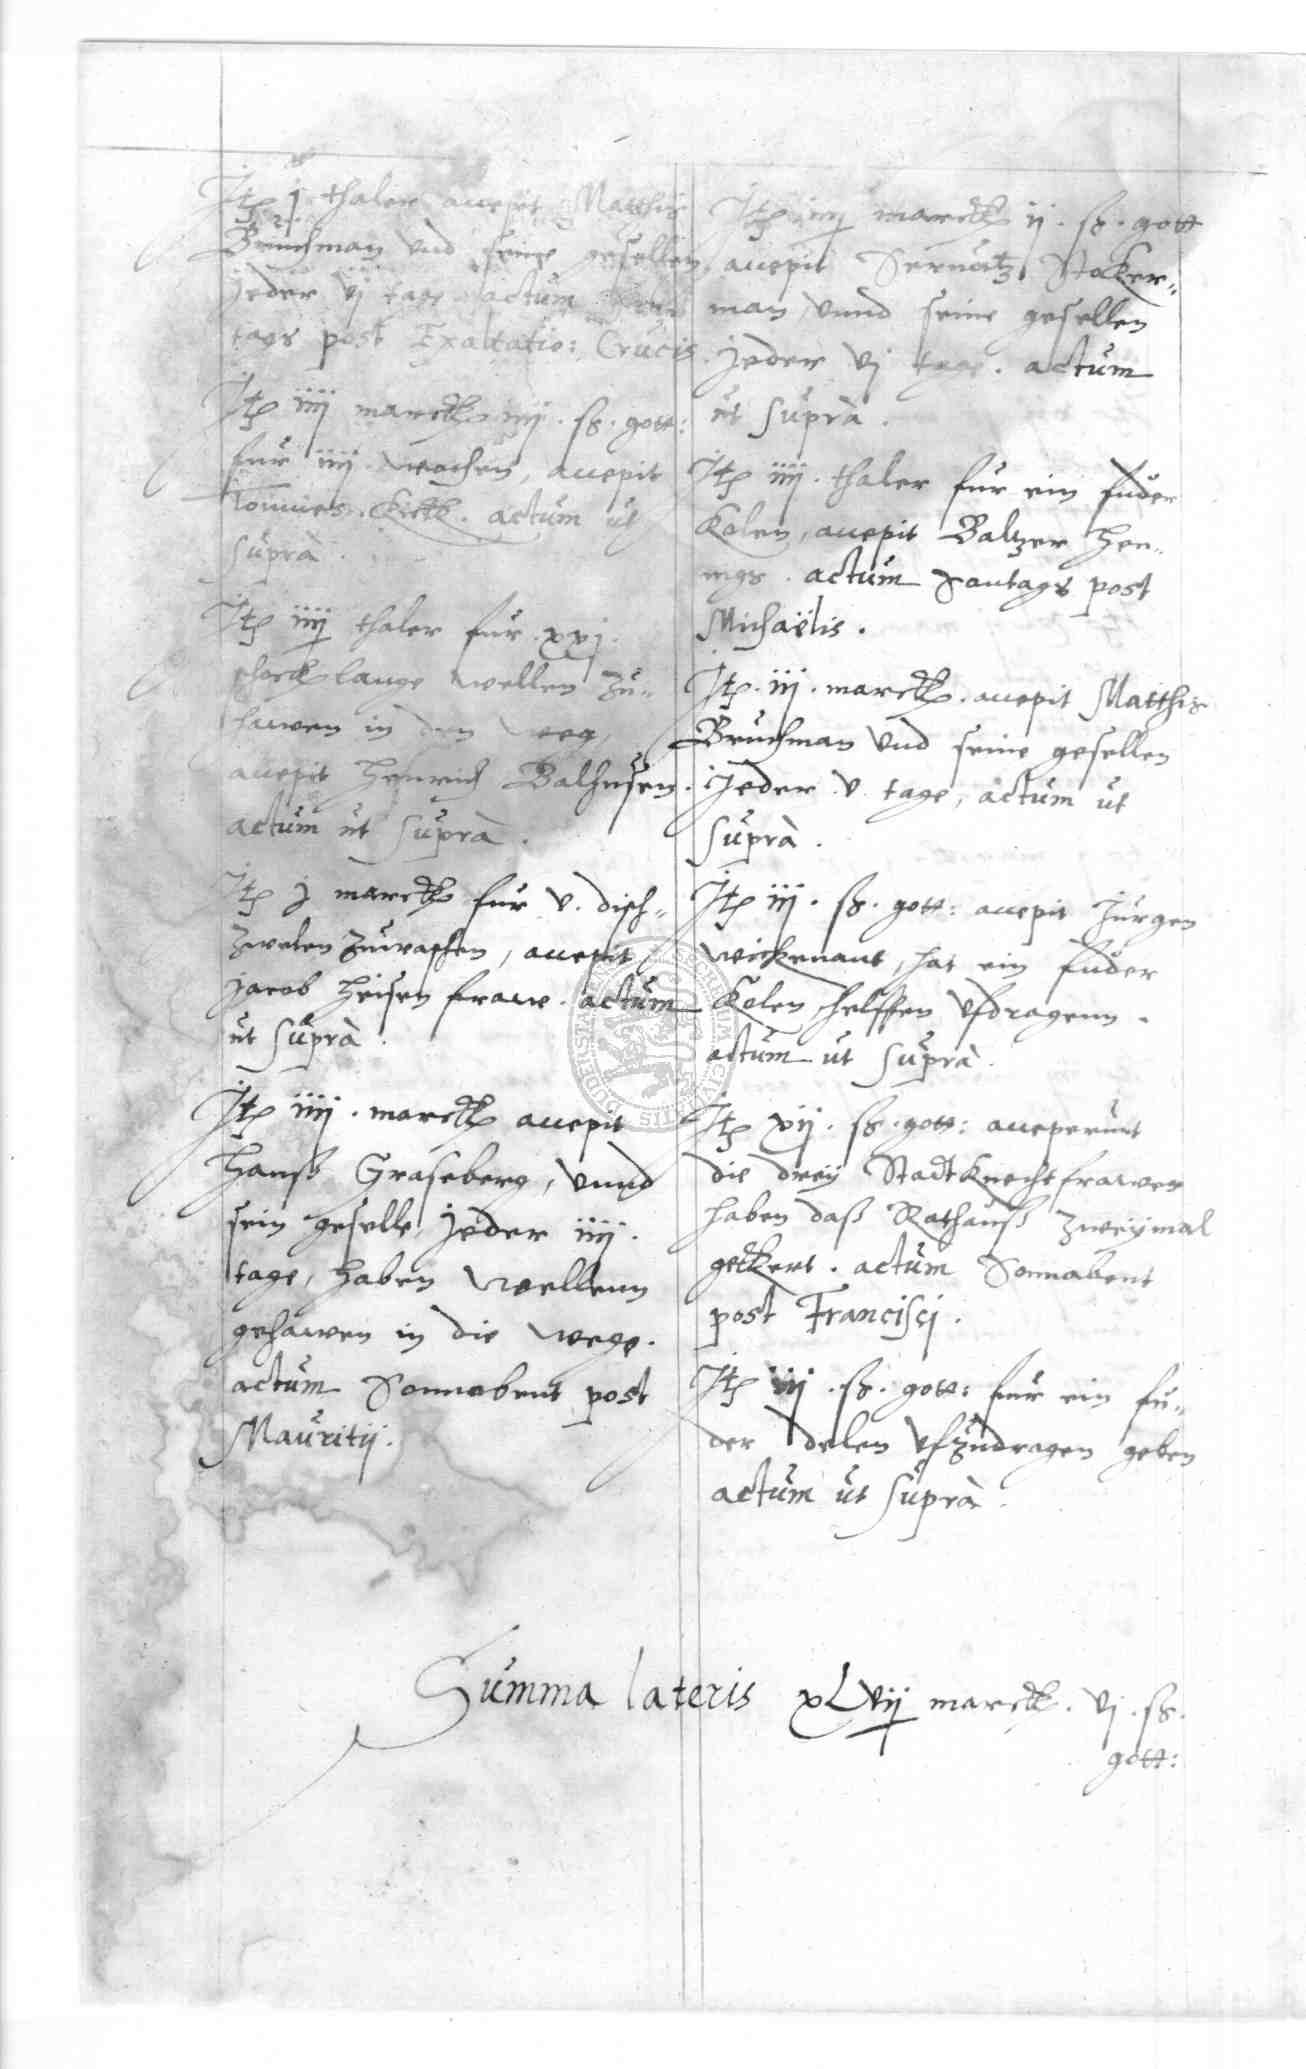 Itz j thaler accepit Matthis
Bruchman vnd seine gesellen
jeder vj tage actum
tags post Exaltatio: Crucis
Itz iiij marck iiij . ß . gott:
fur iiij wochen, accepit
Tonnies . actum ut
supra .
Itz iiij thaler fur . xxj .
schock lange wellen zu„
hauwen in den weg,
accepit Henrich Balhusen .
actum ut supra .
Itz j marck fur v . disch„
zwelen zuwaschen, accepit
Jacob Heisen fraw . actum
ut supra .
Itz iiij . marck accepit
Hanß Graseberg, vnnd
sein geselle jeder iiij .
tage, haben wellenn
gehauwen in die wege .
actum Sonnabent post
Mauritij .
Itz iiij marck ij . ß . gott
accepit Stoker„
man, vnnd seine gesellen
jeder vj tage . actum
ut supra .
Itz iiij . thaler fur ein fuder
Kolen, accepit Baltzer Hen„
ings . actum Sontags post
Michaëlis .
Itz . iij . marck . accepit Matthis
Bruchman vnd seine gesellen
Jeder v tage, actum ut
supra .
Itz iij . ß . gott: accepit Jurgen
Wickenant, hat ein fuder
Kolen helffen vfdragenn .
actum ut supra .
Itz xij . ß . gott: acceperunt
die dreij Stadtknecht frawen
haben daß Rathauß zweijmal
gekert . actum Sonnabent
post Francisci .
Itz iij . ß . gott: fur ein fu„
der delen vfzudragen geben
actum ut supra .
Summa lateris xLvij marck . vj . ß .
gott: